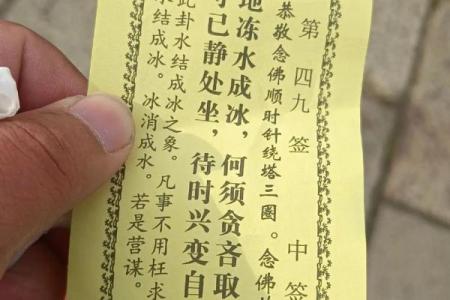 第四九签 中签
恭敬念佛顺时针绕塔三圈。念佛
地冻水成冰，何须贪吝取
己静处坐，待时兴变自
此卦水结成冰之象。凡事不用枉求
水结成冰。冰消成水。若是营谋。